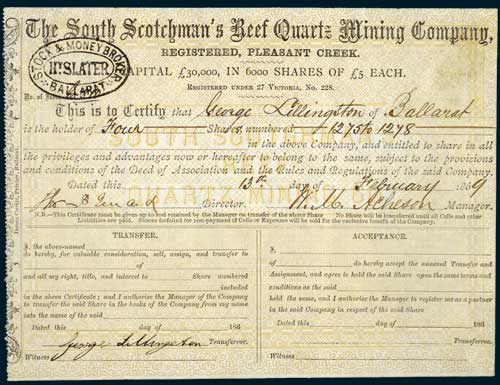 The South Scotchman's Reef Quartz Mining Company,
REGISTERED, PLEASANT CREEK.
CAPITAL £30,000, IN 6000 SHARES OF £5 EACH.
REGISTERED UNDER 27 VICTORIA, No. 228.
STOCK & MONEY BROKER
Hy. SLATER
BALLARAT
No. of
This is to Certify that George Lillingston of Ballarat
is the holder of Four Shares, numbered 1275 to 1278
in the above Company, and entitled to share in all
the privileges and advantages now or hereafter to belong to the same, subject to the provisions
and conditions of the Deed of Association and the Rules and Regulations of the said Company.
Dated this 13th day of February 1869
Director. Manager.
N.B.—This Certificate must be given up to and retained by the Manager on transfer of the above Share No Share will be transferred until all Calls and other
Liabilities are paid. Shares forfeited for non-payment of Calls or Expenses will be sold for the exclusive benefit of the Company.
TRANSFER.
I, the above-named
do hereby, for valuable consideration, sell, assign, and transfer to
of
and all my right, title, and interest to Share numbered
included
in the above Certificate; and I authorise the Manager of the Company
to transfer the said Share in the books of the Company from my name
into the name of the said
Dated this day of 186
George Lillingston Transferror.
Witness
ACCEPTANCE.
I,
of do hereby accept the annexed Transfer and
Assignment, and agree to hold the said Share upon the same terms and
conditions as the said
held the same, and I authorise the Manager to register me as a partner
in the said Company in respect of the said Share
Dated this day of 186
Transferree.
Witness
SOUTH SCOTCHMAN'S
QUARTZ MINING